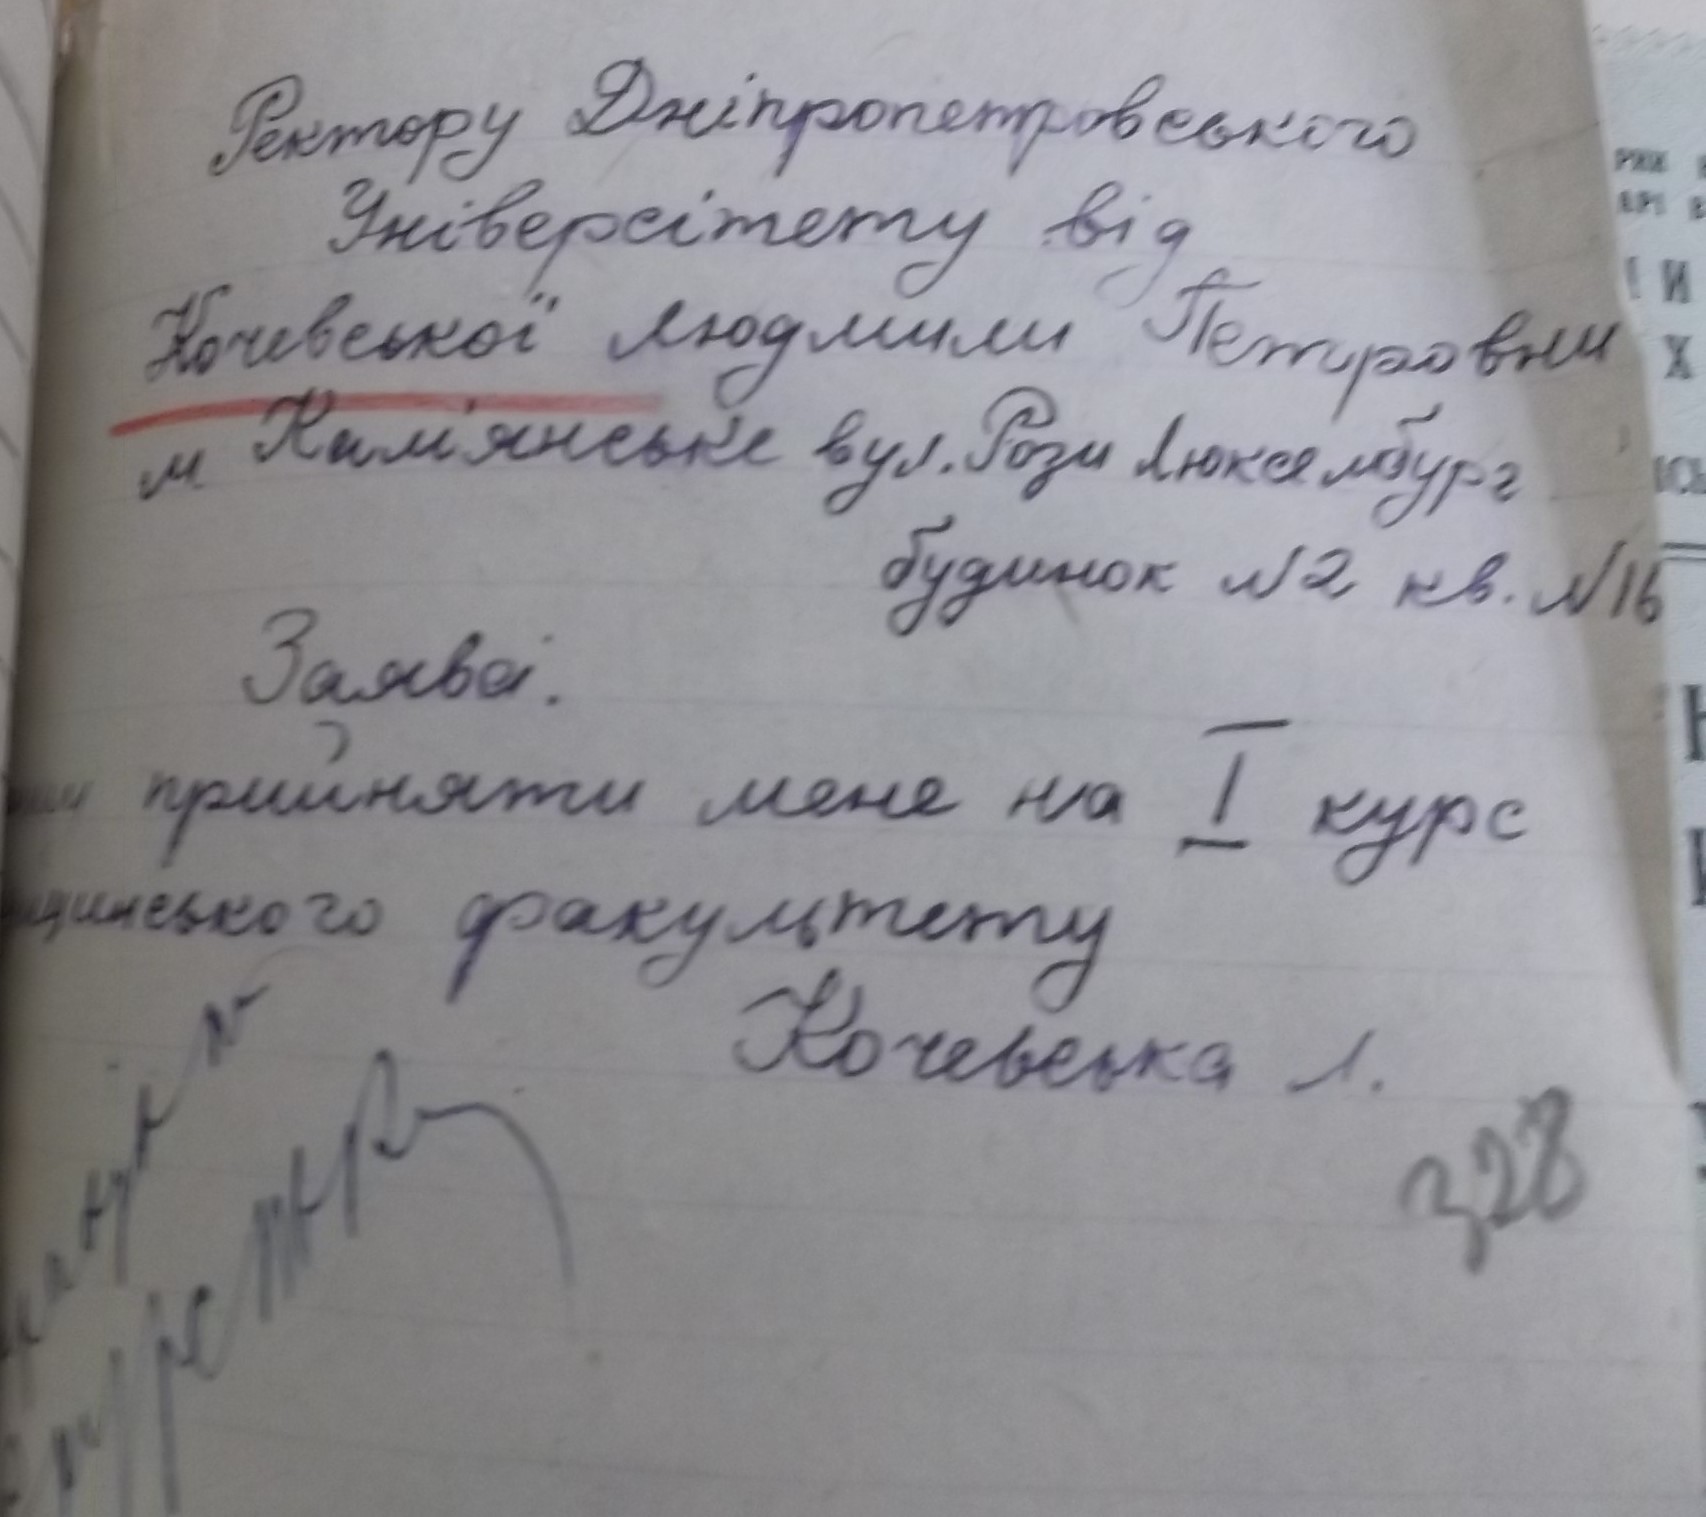 Ректору Дніпропетровського
Універсітету від
Кочевської Людмили Петровни
м Кам'янське вул. Рози Люксембург
будинок №2 кв. №16
Заява.
прийняти мене на I курс
факультету
Кочевська Л.
328